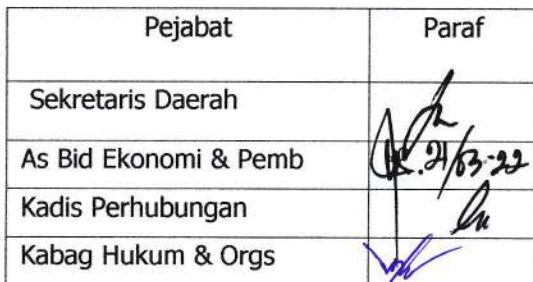 Pejabat Paraf
Sekretaris Daerah
As Bid Ekonomi & Pemb 21/03-22
Kadis Perhubungan
Kabag Hukum & Orgs